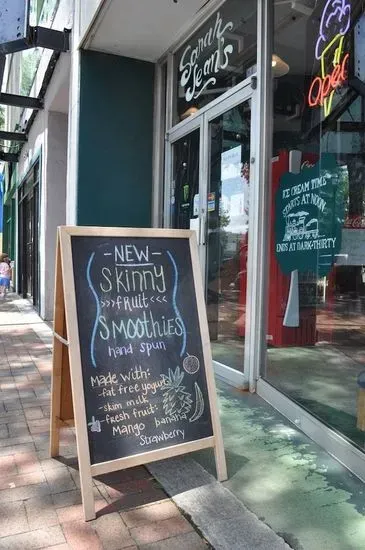 Sarah
Jean's
Open
ICE CREAM TIME
STARTS AT NOON
ENDS AT DARK-THIRTY
-NEW-
Skinny
>>>fruit<<<
SMOOTHIES
hand spun
Made with:
-fat free yogurt
-skim milk
-fresh fruit:
Mango banana
Strawberry